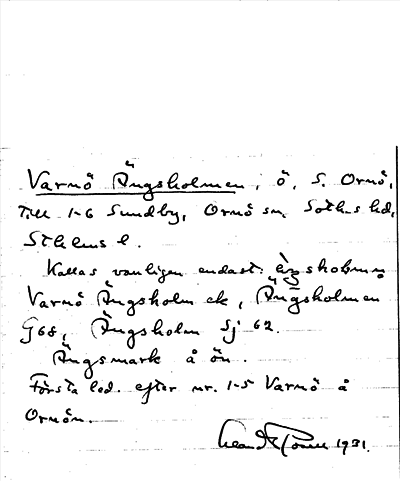 Varnö Ängsholmen, ö, S. Ornö,
Till 1-6 Sundby, Ornö sn, Sotholms hd,
Sthlms l.
Kallas vanligen endast:
Varnö Ängsholm ek, Ängsholmen
G68, Ängsholm Sj 62.
Ängsmark å ön.
Första led. efter nr. 1-5 Varnö å
Ornön.
1931.